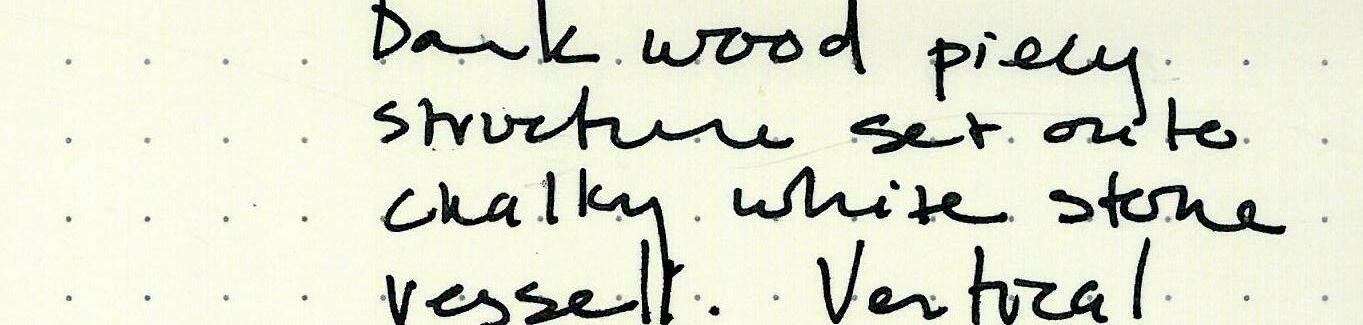 Dark wood piecy
structure set onto
chalky white stone
vessell. Vertical